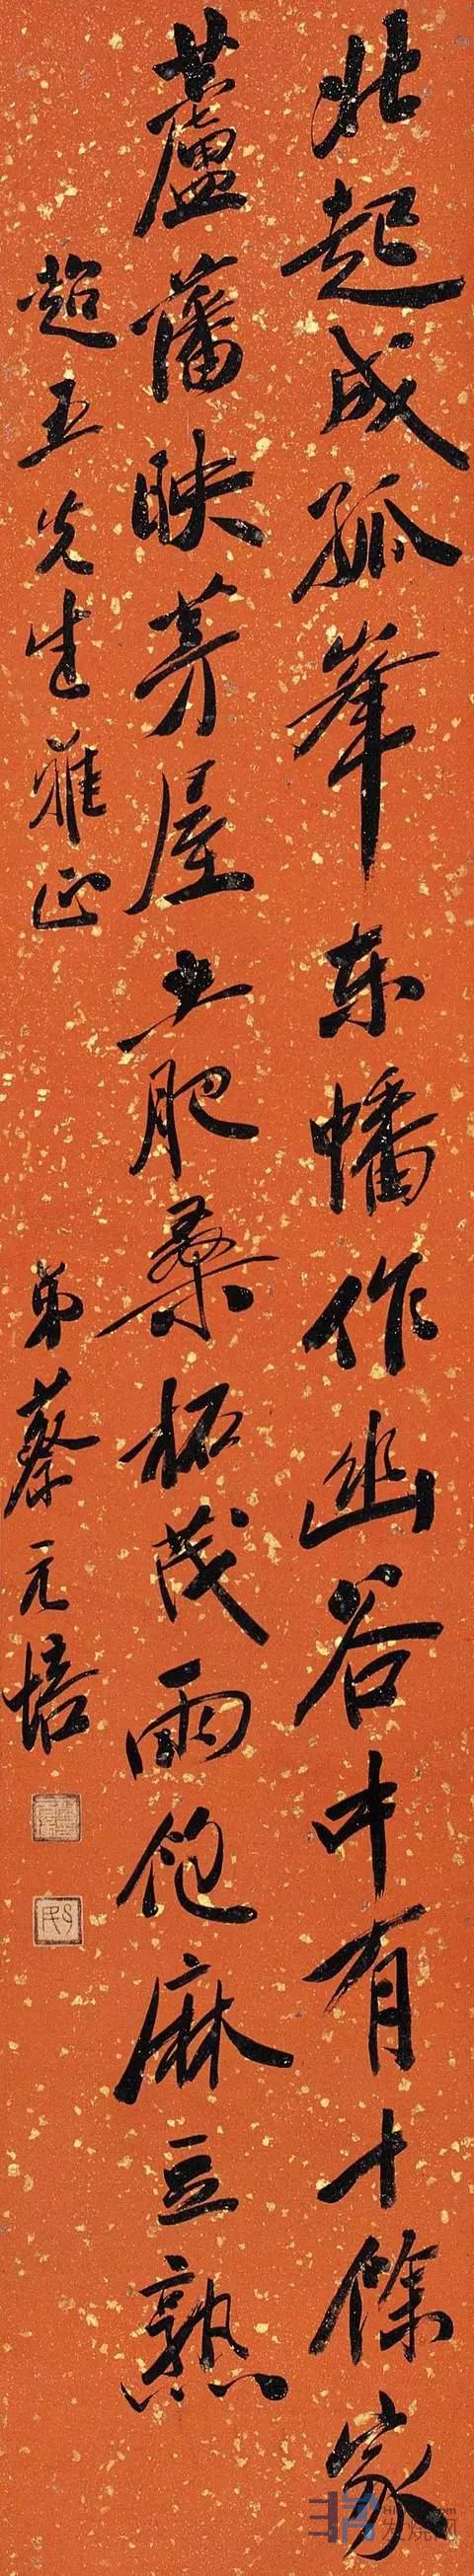 北起成孤峯东蟠作幽谷中有十馀家
蘆藩映茅屋土肥桑柘茂雨飽麻豆熟
超五先生雅正
弟蔡元培
孑民
发烧网